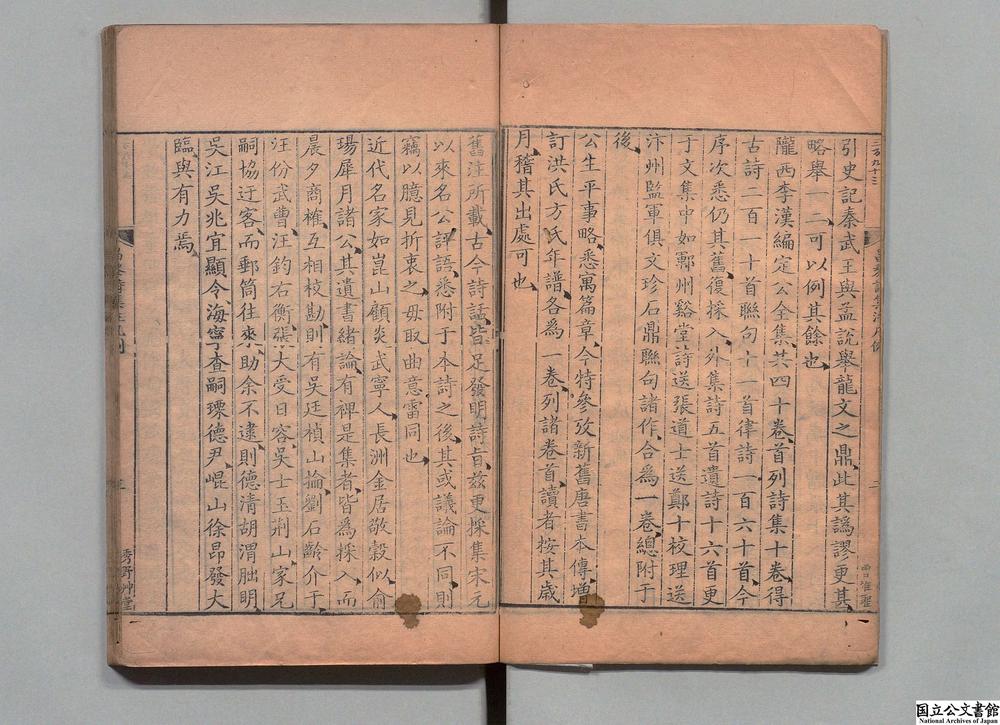 引史記秦武王與孟說舉龍文之鼎此其譌謬更其
略舉一二可以例其餘也
隴西李漢編定公全集共四十卷首列詩集十卷得
古詩二百一十首聯句十一首律詩一百六十首今
序次悉仍其舊復採入外集詩五首遺詩十六首更
于文集中如鄆州谿堂詩送張道士送鄭十校理送
汴州監軍俱文珍石鼎聯句諸作合爲一卷總附于
後
公生平事略悉寓篇章今特參攷新舊唐書本傳增
訂洪氏方氏年譜各爲一卷列諸卷首讀者按其歲
月稽其出處可也
舊注所載古今詩話皆足發明詩旨兹更採集宋元
以來名公評語悉附于本詩之後其或議論不同則
竊以臆見折衷之毋取曲意雷同也
近代名家如崑山顧炎武寧人長洲金居敬穀似俞
瑒犀月諸公其遺書緒論有裨是集者皆爲採入而
晨夕商榷互相校勘則有吳廷楨山掄劉石齡介于
汪份武曹汪鈞右衡張大受日容吳士玉荆山家兄
嗣協迂客而郵筒往來助余不逮則德清胡渭朏明
吳江吳兆宜顯令海寧查嗣瑮德尹崐山徐昂發大
臨與有力焉
秀野艸堂
国立公文書館
National Archives of Japan